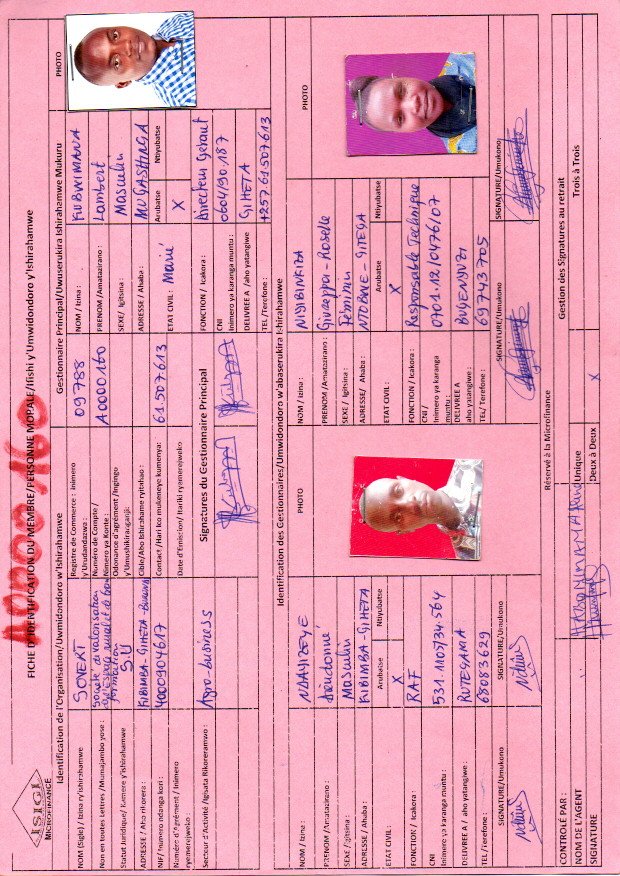 A0000160
ISIGI
MICROFINANCE
FICHE D'IDENTIFICATION DU MEMBRE/PERSONNE MORALE/Ifishi y'Umwidondoro y'Ishirahamwe
Identification de l'Organisation/Umwidondoro w'Ishirahamwe
NOM (Sigle) / Izina ry'ishirahamwe
SOVEXT
Non en toutes Lettres / Mumajambo yose :
Société de valorisation
formation
Statut Juridique/ Kamere y'ishirahamwe
SU
ADRESSE / Aho rikorera :
KIBIMBA-GIHETA-Burundi
NIF/ Inumero ndanga kori :
4000904617
Numéro d'Agrément / Inimero
ryemerejweko :
Secteur d'Activité /Igisata Rikoreramwo :
Agro-business
Registre de Commerce : inimero
y'Urudandazwa :
09788
Numéro de Compte /
Nimero ya Konte :
A0000160
Odonance d'agrément /Ingingo
y'Umushikiranganji:
Cible/Abo Ishirahame ryitaho :
Contact /Hari iko mukeneye kumenya:
61507613
Date d'Emission/ Itariki ryemerejweko
Signatures du Gestionnaire Principal
Gestionnaire Principal/Uwuserukira Ishirahamwe Mukuru
PHOTO
NOM / Izina :
KUBWIMANA
PRENOM /Amatazirano :
Lambert
SEXE/ Igitsina :
Masculin
ADRESSE / Ahaba :
MUGASHINGA
Arubatse
Ntiyubatse
ETAT CIVIL : Marié
X
FONCTION / Icakora :
Directeur Gérant
CNI
Inimero ya karanga muntu :
0604/90.187
DELIVREE A /aho yatangiwe :
GIHETA
TEL /Terefone :
+257 61507613
Identification des Gestionnaires/Umwidondoro w'abaserukira Ishirahamwe
PHOTO
NOM / Izina :
NDAYIZEYE
PRENOM /Amatazirano :
Dieudonné
SEXE / Igitsina :
Masculin
ADRESSE / Ahaba :
KIBIMBA-GIHETA
Arubatse
Ntiyubatse
ETAT CIVIL :
X
FONCTION / Icakora :
RAF
CNI
Inimero ya karanga muntu :
531.1105/34.564
DELIVREE A / aho yatangiwe :
RUTEGAMA
TEL / Terefone :
68083629
SIGNATURE/Umukono
SIGNATURE/Umukono
PHOTO
NOM / Izina :
NIYIBINKIZA
PRENOM /Amatazirano :
Giuseppa-Roselle
SEXE / Igitsina :
Féminin
ADRESSE/ Ahaba :
NTOBWE-GITEGA
Arubatse
Ntiyubatse
ETAT CIVIL :
X
FONCTION / Icakora :
Responsable Technique
CNI /
Inimero ya karanga
muntu :
0701.12/0176/07
DELIVREE A
aho yatangiwe :
BUYENZI
TEL/ Terefone :
69743705
SIGNATURE/Umukono
SIGNATURE/Umukono
Réservé à la Microfinance
CONTROLÉ PAR :
NOM DE L'AGENT
SIGNATURE
Gestion des Signatures au retrait
Unique
Deux à Deux
X
Trois à Trois